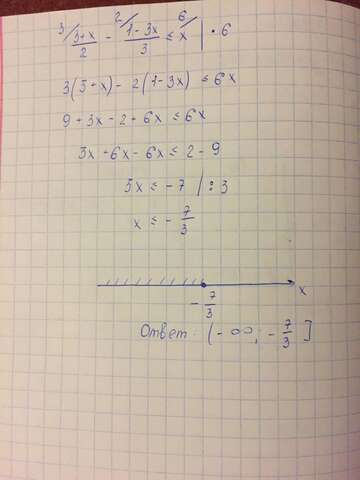 3/ (3+x)/2 - 2/ (1-3x)/3 ≤ 6/ x | · 6
3(3+x) - 2(1-3x) ≤ 6x
9 + 3x - 2 + 6x ≤ 6x
3x + 6x - 6x ≤ 2 - 9
3x ≤ -7 | : 3
x ≤ - 7/3
x
- 7/3
Ответ: (-∞; - 7/3]